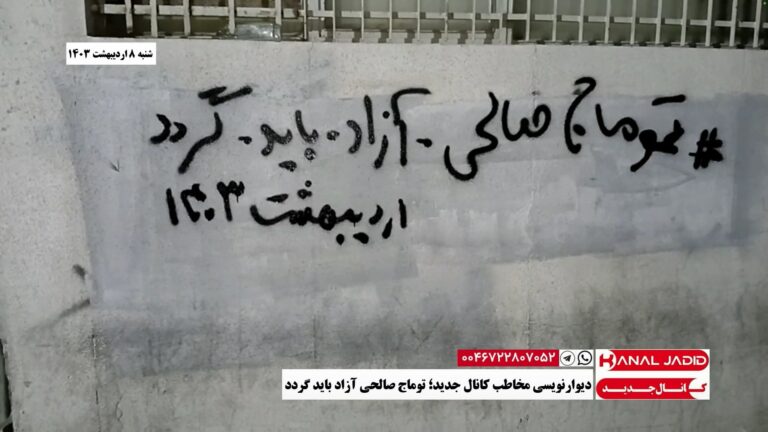 شنبه ۸ اردیبهشت ۱۴۰۳
#توماج صالحی.آزاد.باید.گردد
اردیبهشت ۱۴۰۳
۰۰۴۶۷۲۲۸۰۷۰۵۲
KANAL JADID
کانال جدید
دیوارنویسی مخاطب کانال جدید؛ توماج صالحی آزاد باید گردد